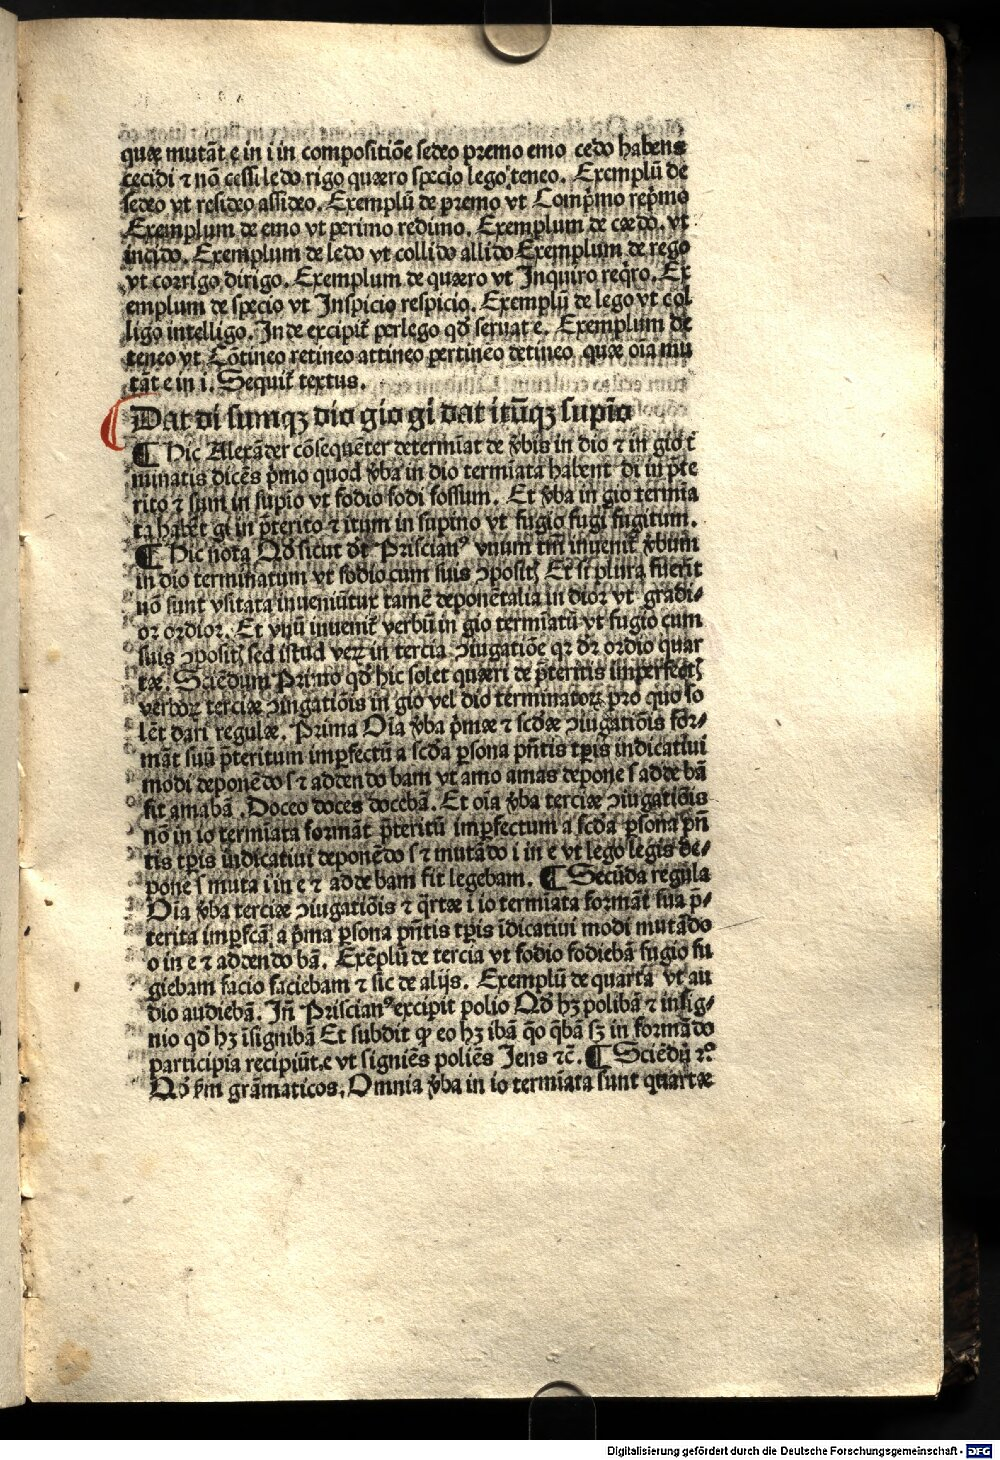 quæ mutāt e in i in compositiōe sedeo premo emo cedo habens
cecidi ⁊ nō cessi ledo rigo quæro specio lego teneo. Exemplū de
sedeo vt resideo assideo. Exemplū de premo vt Comp̄mo rep̄mo
Exemplum de emo vt perimo redimo. Exemplum de cædo. vt
incido. Exemplum de ledo vt collido allido Exemplum de rego
vt corrigo dirigo. Exemplum de quæro vt Inquiro reqͥro. Ex
emplum de specio vt Inspicio respicio. Exemplū de lego vt col
ligo intelligo. Inde excipit̄ perlego qd̄ seruat e. Exemplum de
teneo vt Cōtineo retineo attineo pertineo detineo quæ oīa mu
tāt e in i. Sequit̄ textus.
Dat di sumqꝫ dio gio gi dat itūqꝫ supīo
¶ Hic Alexāder cōsequēter determīat de v̄bis in dio ⁊ in gio t̄
minatis dicēs p̄mo quod v̄ba in dio termīata habent di in p̄te
rito ⁊ sum in supīo vt fodio fodi fossum. Et v̄ba in gio termīa
ta habēt gi in p̄terito ⁊ itum in supino vt fugio fugi fugitum.
¶ Hic nota Qd̄ sicut dt̄ Priscianꝰ vnum tm̄ inuenit̄ v̄bum
in dio terminatum vt fodio cum suis ꝯpositꝭ Et si plura fuerīt
nō sunt vsitata inueniūtur tamē deponētalia in dior vt gradi⸗
or ordior. Et vnū inuenit̄ verbū in gio termīatū vt fugio cum
suis ꝯpositꝭ sed istud verꝫ in tercia ꝯiugatiōe qꝛ dr̄ ordio quar
tæ. Sciēdum Primo qd̄ hic solet quæri de p̄teritis imperfectꝭ
verboꝝ terciæ ꝯiugatiōis in gio vel dio terminatoꝝ pro quo so
lēt dari regulæ. Prima Oīa v̄ba p̄mæ ⁊ scd̄æ ꝯiugatiōis for⸗
māt suū p̄teritum imꝑfectū a scd̄a ꝑsona pn̄tis tꝑis indicatiui
modi deponēdo s ⁊ addendo bam vt amo amas depone s adde bā
fit amabā. Doceo doces docebā. Et oīa v̄ba terciæ ꝯiugatiōis
nō in io termīata formāt p̄teritū imꝑfectum a scd̄a ꝑsona pn̄
tis tꝑis indicatiui deponēdo s ⁊ mutādo i in e vt lego legis de⸗
pone s muta i in e ⁊ adde bam fit legebam. ¶ Secūda regula
Oīa v̄ba terciæ ꝯiugatiōis ⁊ qͣrtæ i io termīata formāt sua p̄⸗
terita imꝑfc̄a a p̄ma ꝑsona pn̄tis tꝑis īdicatiui modi mutādo
o in e ⁊ addendo bā. Exēplū de tercia vt fodio fodiebā fugio fu
giebam facio faciebam ⁊ sic de alijs. Exemplū de quarta vt au
dio audiebā. Jn̄ Priscianꝰ excipit polio Qd̄ hꝫ polibā ⁊ insig⸗
nio qd̄ hꝫ īsignibā Et subdit qꝫ eo hꝫ ibā q̄o qͥbā sꝫ in formādo
participia recipiūt e vt signiēs poliēs Jens ⁊c̄. ¶ Sciēdū 2º
Qd̄ ẜm grāmaticos. Omnia v̄ba in io termīata sunt quartæ
Digitalisierung gefördert durch die Deutsche Forschungsgemeinschaft - DFG